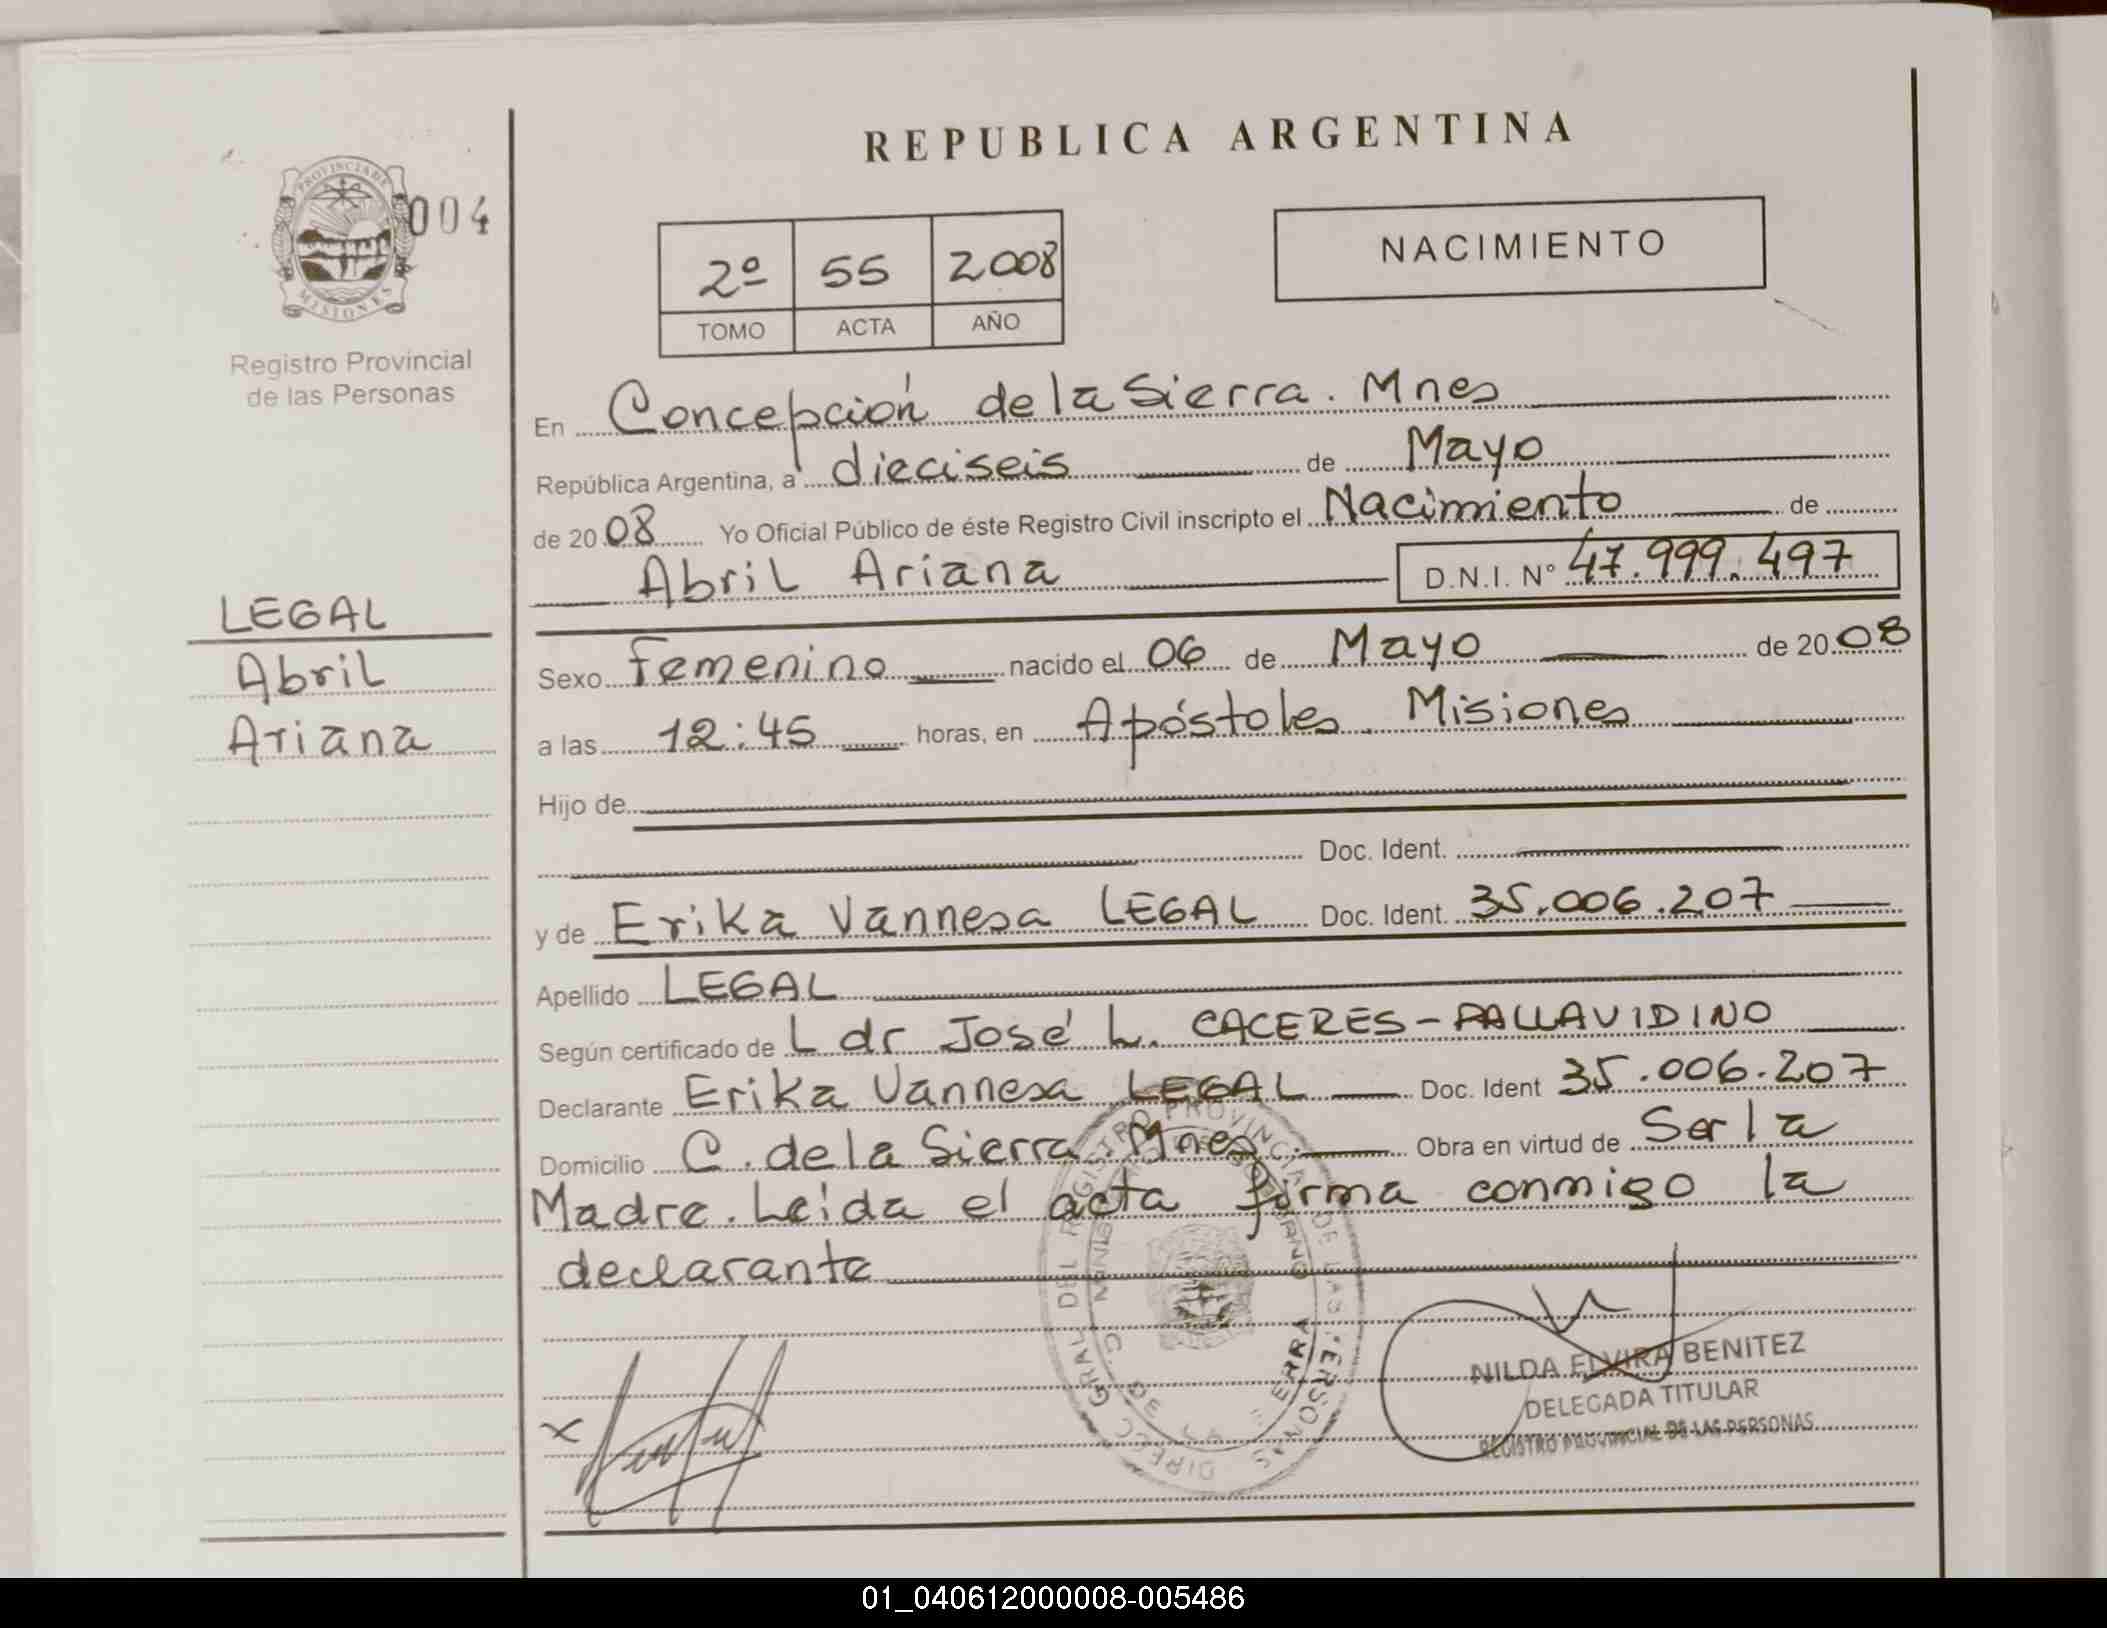 REPUBLICA ARGENTINA
PROVINCIA DE MISIONES
004
Registro Provincial
de las Personas
2º 55 2008
TOMO ACTA AÑO
NACIMIENTO
En Concepción de la Sierra. Mnes
República Argentina, a dieciseis de Mayo
de 2008 Yo Oficial Público de éste Registro Civil inscripto el Nacimiento de
Abril Ariana D.N.I. Nº 47.999.497
LEGAL
Abril
Ariana
Sexo Femenino nacido el 06 de Mayo de 2008
a las 12:45 horas, en Apóstoles. Misiones
Hijo de
Doc. Ident.
y de Erika Vannesa LEGAL Doc. Ident. 35.006.207
Apellido LEGAL
Según certificado de L dr José L. CACERES-PALLAVIDINO
Declarante Erika Vannesa LEGAL Doc. Ident 35.006.207
Domicilio C. de la Sierra. Mnes. Obra en virtud de Ser la
Madre. Leída el acta firma conmigo la
declarante
x
NILDA ELVIRA BENITEZ
DELEGADA TITULAR
REGISTRO PROVINCIAL DE LAS PERSONAS
01_040612000008-005486